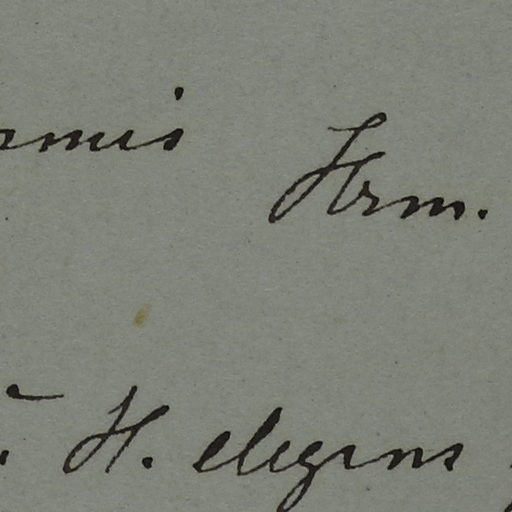 rmis Hrm.
H. elegans